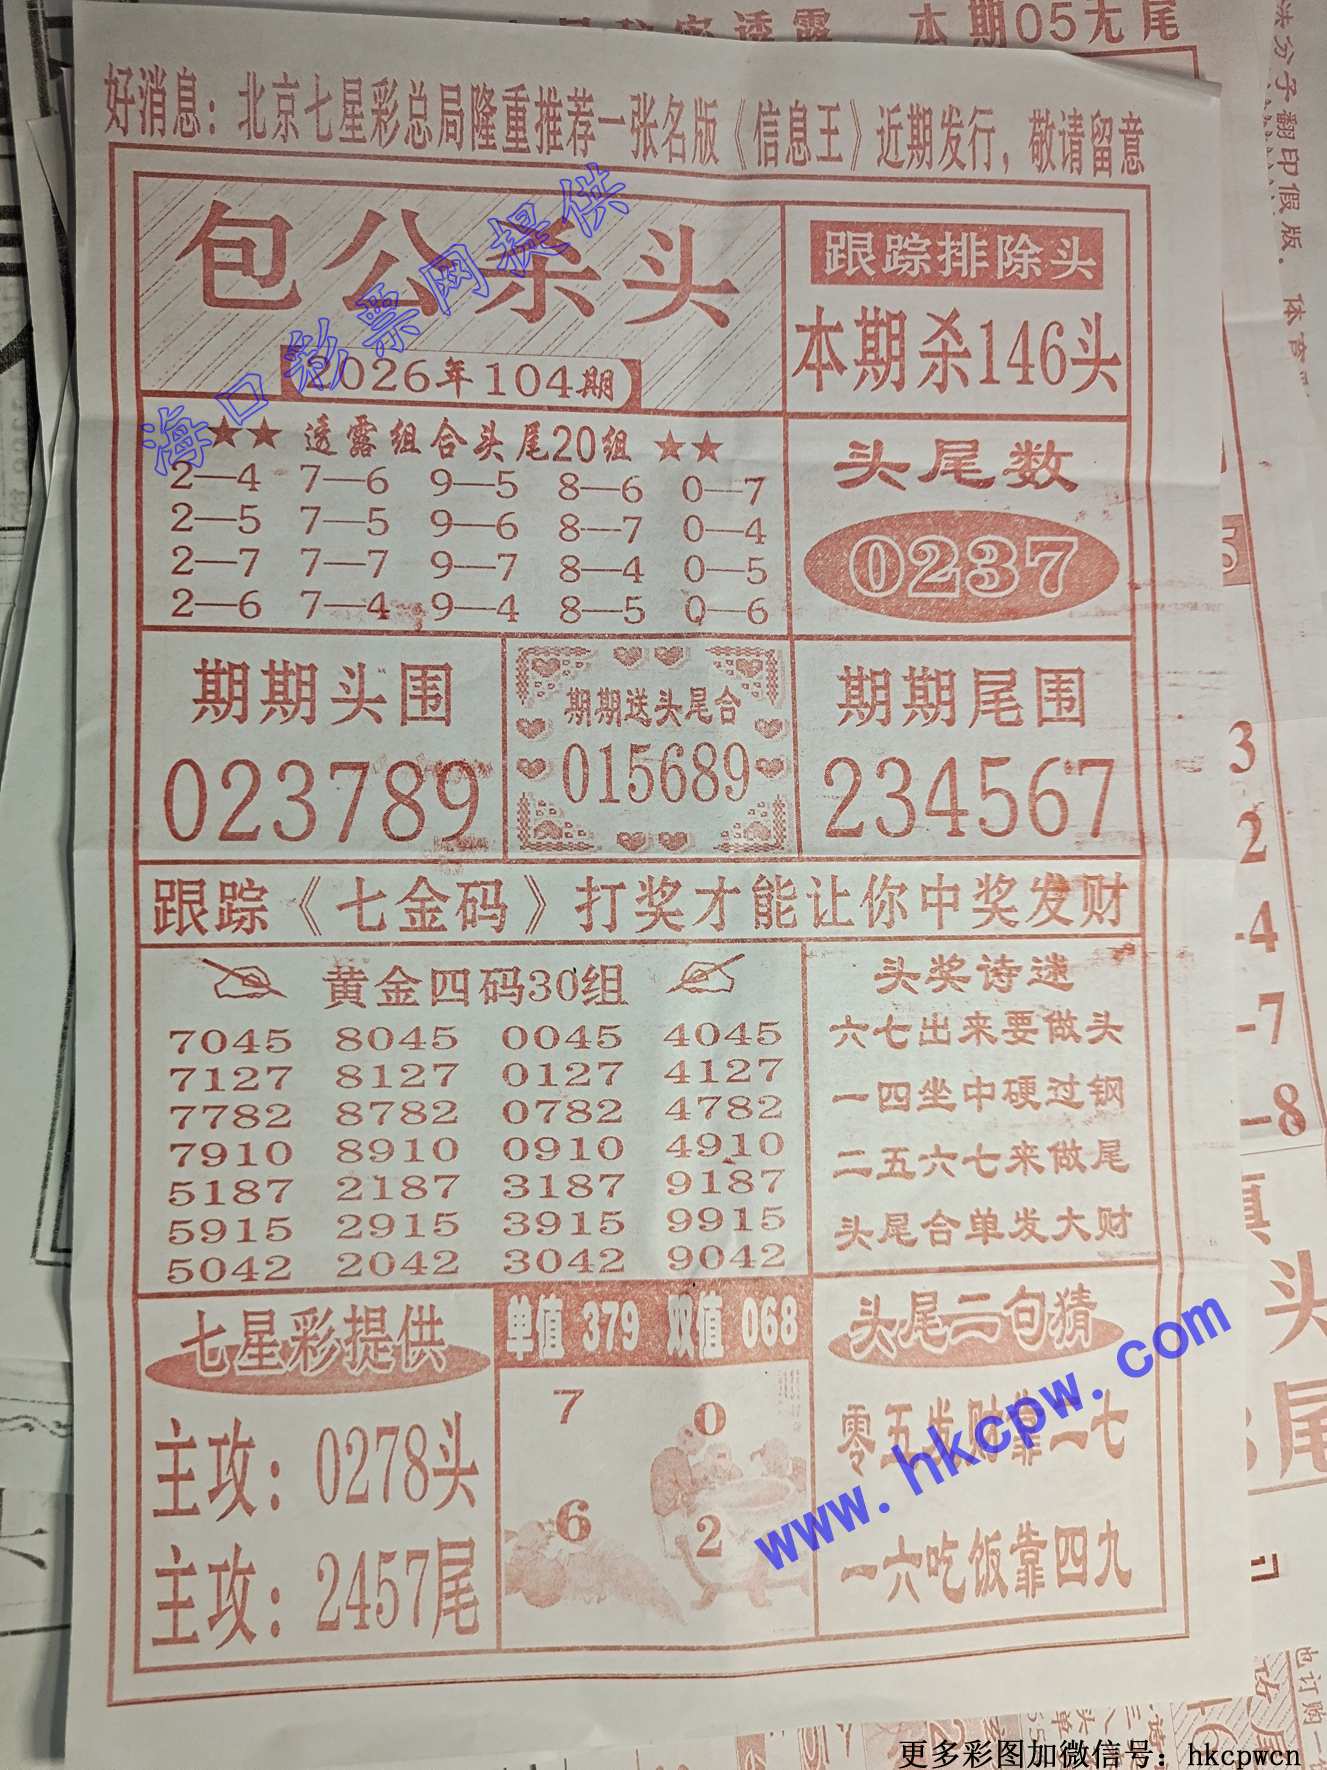 本期05无尾
好消息：北京七星彩总局隆重推荐一张名版《信息王》近期发行，敬请留意
包公杀头
2026年104期
跟踪排除头
本期杀146头
海口彩票网提供
★★ 透露组合头尾20组 ★★
2—4 7—6 9—5 8—6 0—7
2—5 7—5 9—6 8—7 0—4
2—7 7—7 9—7 8—4 0—5
2—6 7—4 9—4 8—5 0—6
头尾数
0237
期期头围
023789
期期送头尾合
015689
期期尾围
234567
跟踪《七金码》打奖才能让你中奖发财
黄金四码30组
7045 8045 0045 4045
7127 8127 0127 4127
7782 8782 0782 4782
7910 8910 0910 4910
5187 2187 3187 9187
5915 2915 3915 9915
5042 2042 3042 9042
头奖诗迷
六七出来要做头
一四坐中硬过钢
二五六七来做尾
头尾合单发大财
七星彩提供
主攻：0278头
主攻：2457尾
单值 379 双值 068
7 0
6 2
头尾二句猜
零五发财靠二七
一六吃饭靠四九
www.hkcpw.com
法分子翻印假版．
3
2
-4
-7
-8
真
头
尾
也订购一
更多彩图加微信号：hkcpwcn